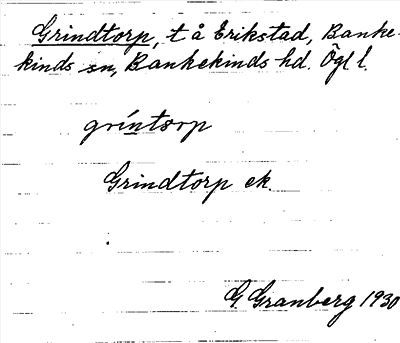 Grindtorp, t å Erikstad, Banke-
kinds sn, Bankekinds hd. Ögl l.
gríntsrp
Grindtorp ek.
G. Granberg 1930